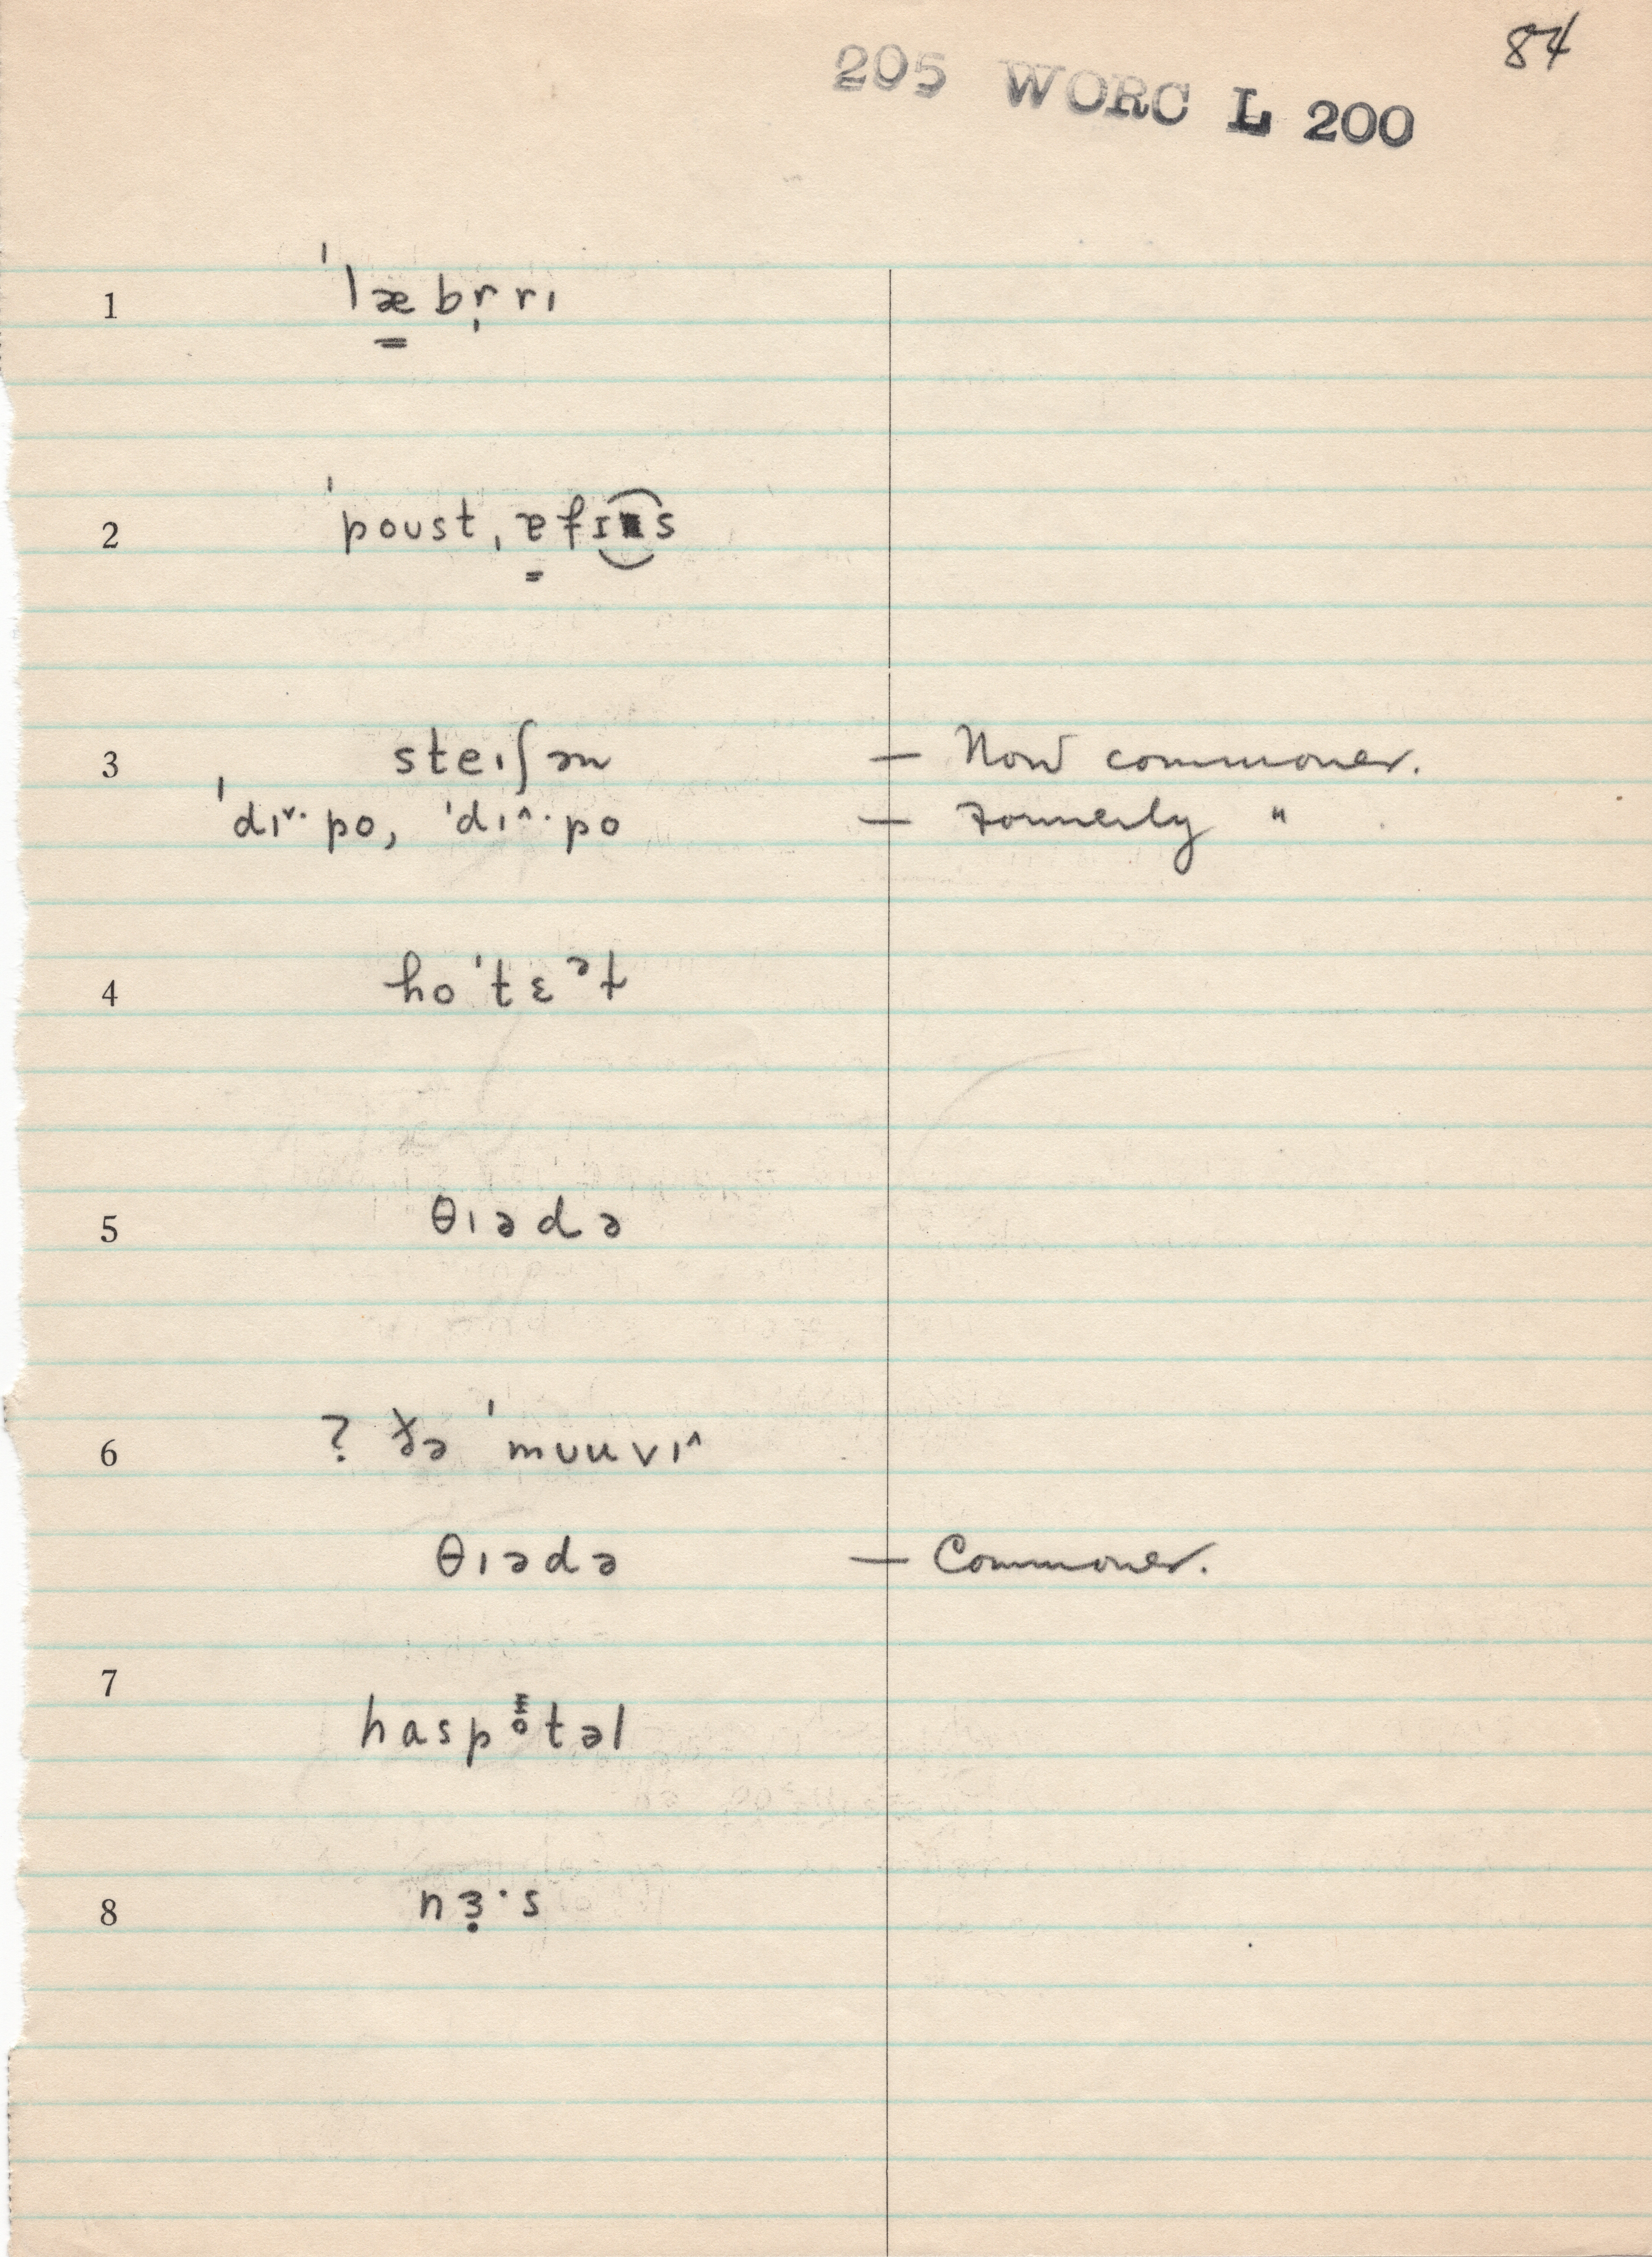 84
205 WORC L 200
1 ˈlæ̳br̩rɪ
2 ˈpoust, ɐ̳fɪs
3 steɪʃən — Now commoner.
ˈdɪ˅·po, ˈdɪ˄·po — Formerly "
4 hoˈtɛᵊɫ
5 θɪədə
6 ? ðə ˈmuuvɪ˄
θɪədə — Commoner.
7 haspətəl
8 nɜ̣·s